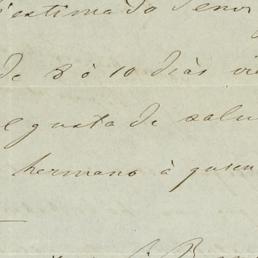 estimado Señor
de 8 ó 10 dias
gusta de salu
hermano à quien